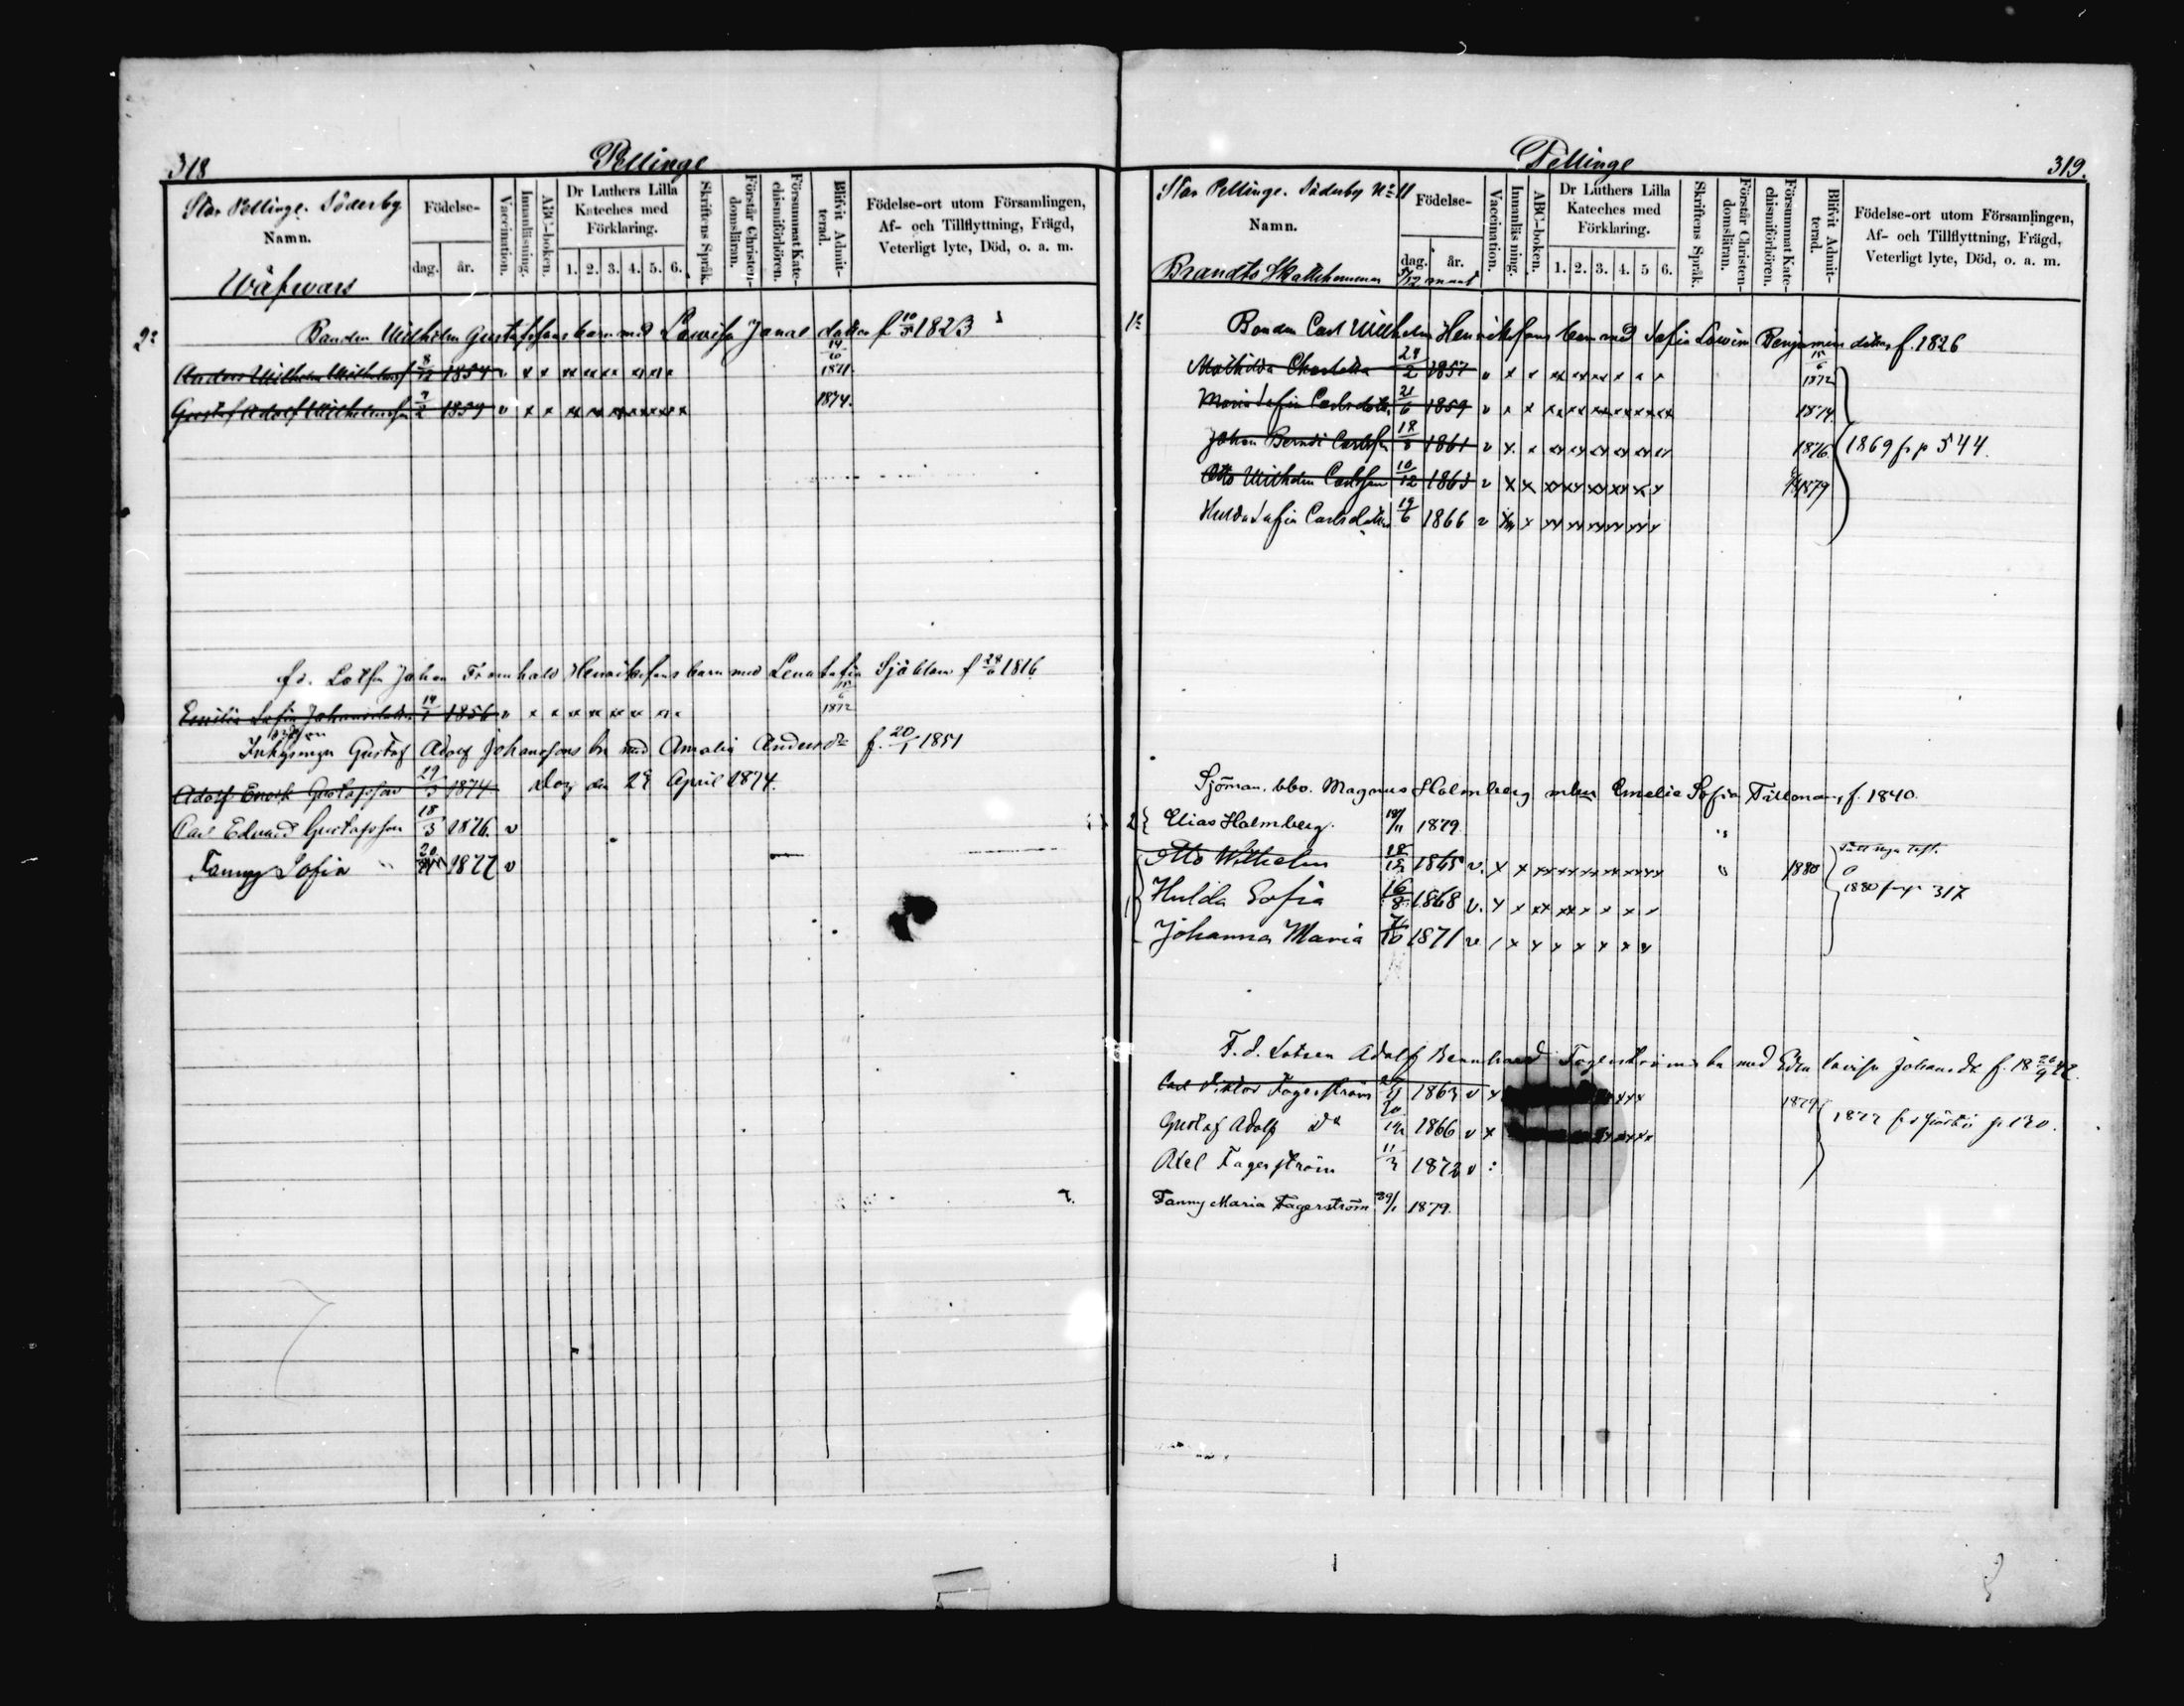 318
Pellinge
Stor Pellinge. Söderby
Namn.
Wäfwars
Födelse-
dag. år.
Vaccination.
Innanläsning.
ABC-boken.
Dr Luthers Lilla
Kateches med
Förklaring.
1. 2. 3. 4. 5. 6.
Skriftens Språk.
Förstår Christen-
domsläran.
Försummat Kate-
chismiförhören.
Blifvit Admit-
terad.
Födelse-ort utom Församlingen,
Af- och Tillflyttning, Frägd,
Veterligt lyte, Död, o. a. m.
Bonden Wilhelm Gustafssons barn med Lowisa Janas dotter f. 10/3 1823
Anders Wilhelm Wilhelmsson 8/12 1854 v x x xx xx xx xx x 1871.
Gustaf Adolf Wilhelmsson 7/2 1859 v x x 1874.
fd. Lotsen Johan Fromhold Henrikssons barn med Lena Sofia Sjöblom f 28/6 1816
Emilia Sofia Johansdotter 19/1 1856 v x x 15/6 1872
Inhysingen Gustaf Adolf Johanssons bn med Amalia Andersdr f. 20/1 1851
Adolf Enock Gustafsson 29/3 1874 Dog den 29 April 1874.
Carl Edvard Gustafsson 18/3 1876. v
Fanny Sofia " 20 1877 v
Pellinge
319.
Stor Pellinge. Söderby No 11
Namn.
Brandts Skattehemman 5/12 mant
Födelse-
dag. år.
Vaccination.
Innanläsning.
ABC-boken.
Dr Luthers Lilla
Kateches med
Förklaring.
1. 2. 3. 4. 5 6.
Skriftens Språk.
Förstår Christen-
domsläran.
Försummat Kate-
chismiförhören.
Blifvit Admit-
terad.
Födelse-ort utom Församlingen,
Af- och Tillflyttning, Frägd,
Veterligt lyte, Död, o. a. m.
Bonden Carl Wilhelm Henrikssons barn med Sofia Lowisa Benjamins dotter f. 1826
Mathilda Charlotta 28/2 1857 v x x 15/6 1872
Maria Sofia Carlsdotter 21/6 1859 v x x 1874.
Johan Berndt Carlsson 18/8 1861 v x x 1876. 1869 fr p 544.
Otto Wilhelm Carlsson 10/12 1863 v x x 1879
Hulda Sofia Carlsdotter 19/6 1866 v x
Sjöman. bbo. Magnus Holmberg Emelie Sofia Tillman, f. 1840.
Elias Holmberg. 18/11 1879.
Otto Wilhelm 18/12 1865 v. x x 1880
Hulda Sofia 16/8 1868 v. x x 1880 fr p 317
Johanna Maria 7/10 1871 v
F.d. Lotsen Adolf Bernhard Fagerströms bn med Edla Lovisa Johansdr f. 18 26/9 42.
Carl Viktor Fagerström 1863 v x
Gustaf Adolf do 20 1866 v x 1879 1877 fr p 130.
Axel Fagerström 11/3 1872 v
Fanny Maria Fagerström 29/1 1879.